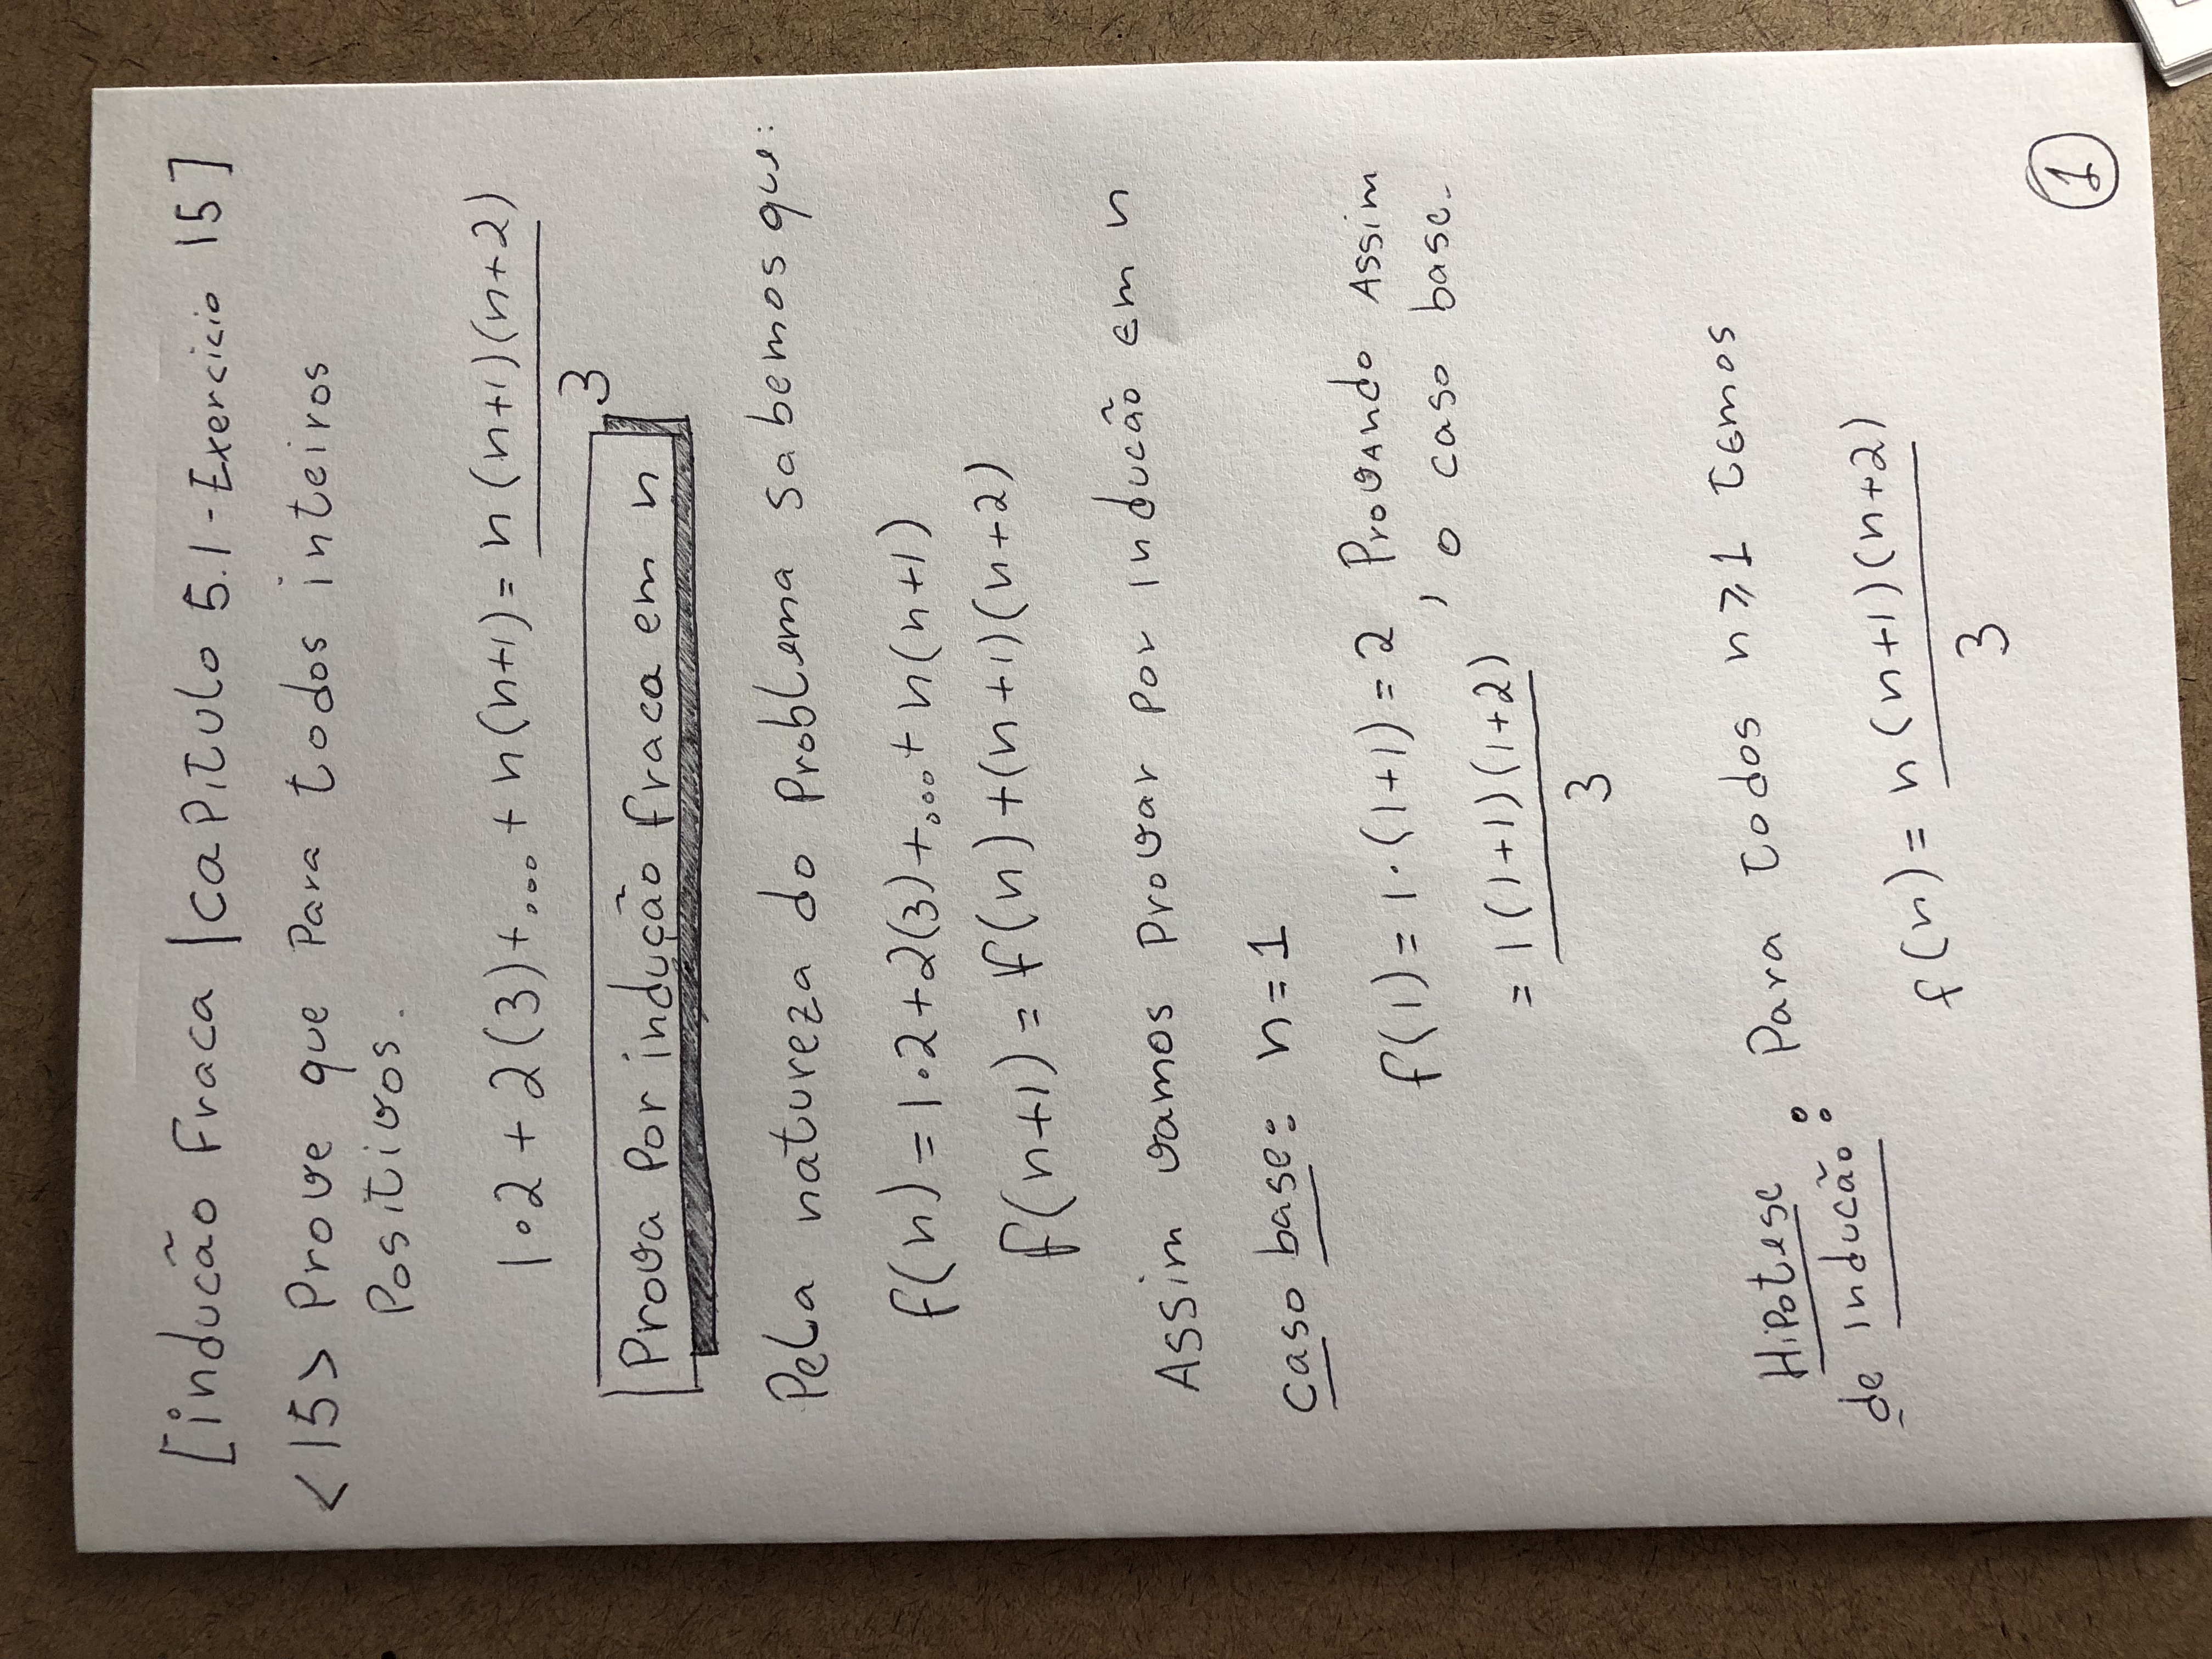 [indução Fraca | Capitulo 5.1 - Exercicio 15]
<15> Prove que Para todos inteiros
Positivos.
1∘2 + 2(3) + ... + n(n+1) = n(n+1)(n+2)
3
Prova Por indução fraca em n
Pela natureza do Problema sabemos que:
f(n) = 1∘2 + 2(3) + ... + n(n+1)
f(n+1) = f(n) + (n+1)(n+2)
Assim vamos Provar Por indução em n
Caso base: n = 1
f(1) = 1·(1+1) = 2 Provando Assim
, o caso base.
= 1(1+1)(1+2)
3
Hipotese
de indução: Para todos n ⩾ 1 temos
f(n) = n(n+1)(n+2)
3
1